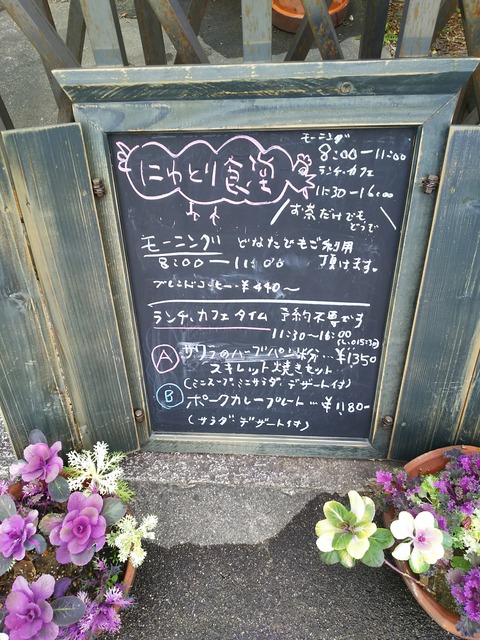 にわとり食堂
モーニング
8:00ー11:00
ランチ・カフェ
11:30ー16:00
お茶だけでも
どうぞ
モーニング どなたでもご利用
8:00ー11:00 頂けます。
ブレンドコーヒー・¥440〜
ランチ、カフェタイム 予約不要です
11:30〜16:00
(L.O15:30)
A サワラのハーブパン粉…¥1350
スキレット焼きセット
(ミニスープ、ミニサラダ、デザート付)
B ポークカレープレート…¥1180-
(サラダ・デザート付)